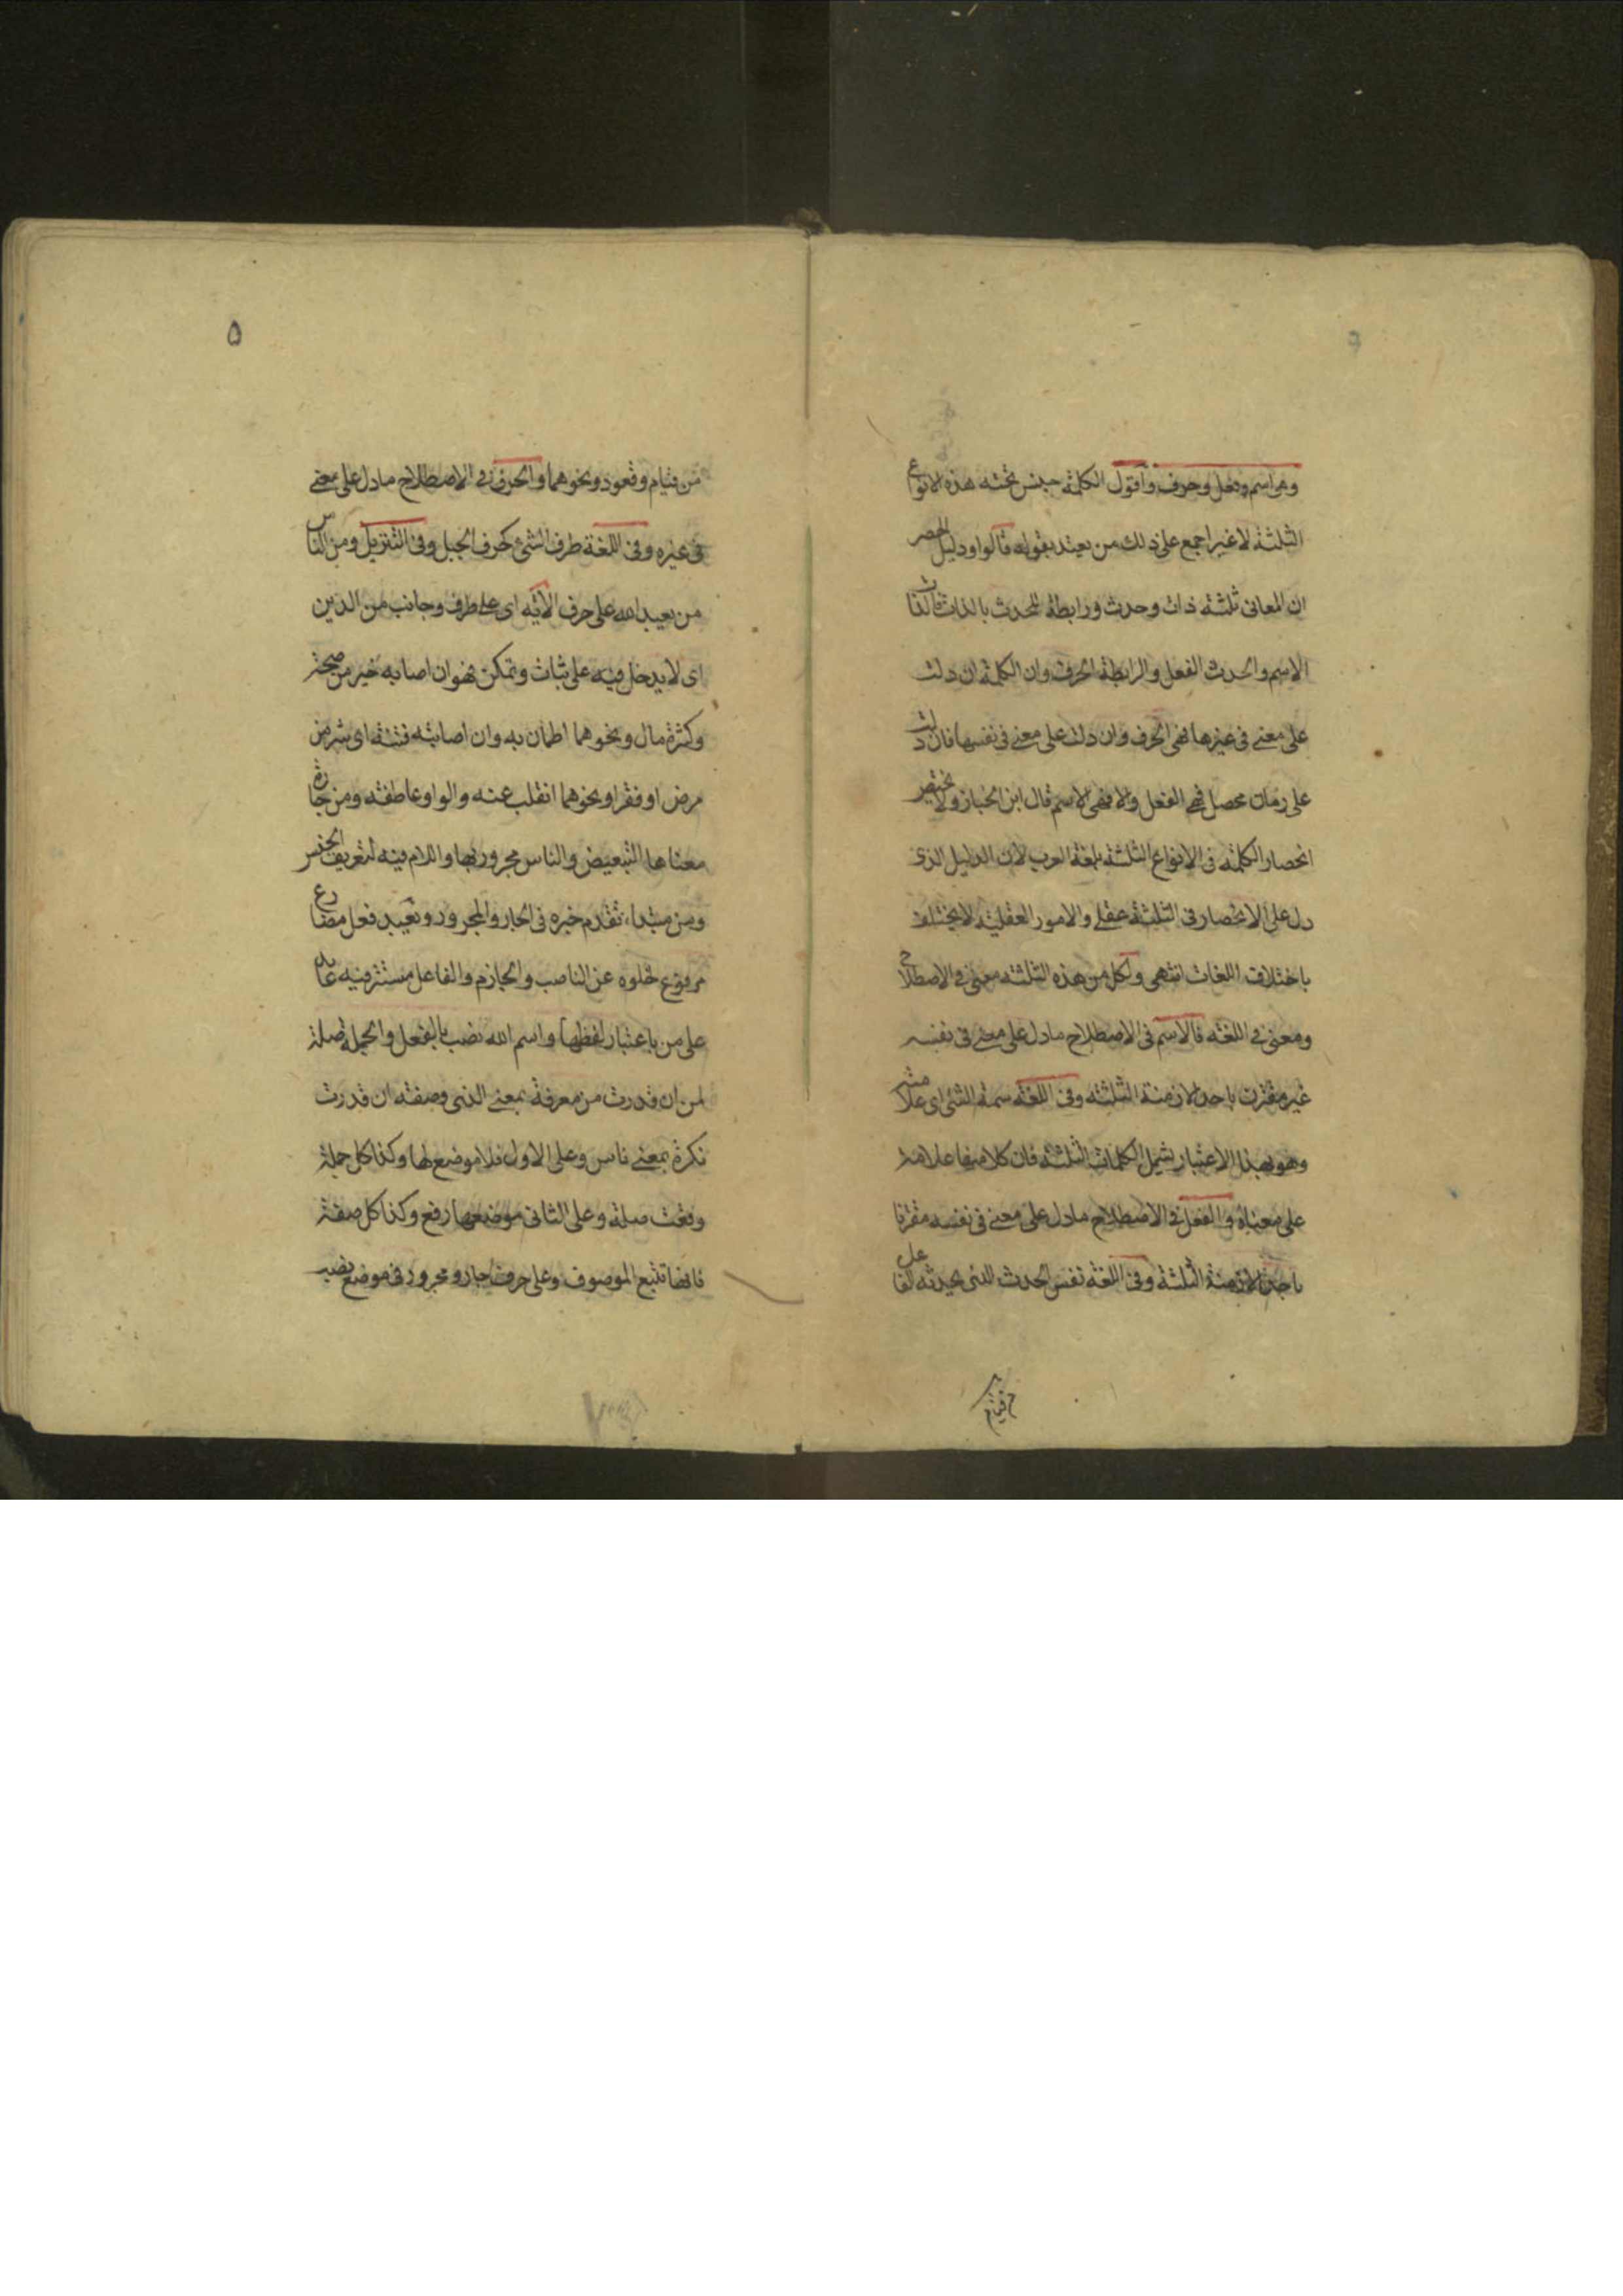 وهي اسم وفعل وحرف واقول الكلمة جنس تحته هذه الانواع
الثلثة لا غير اجمع على ذلك من يعتد بقوله قالوا ودليل الحصر
ان المعانى ثلثة ذات وحدث ورابطة للحدث بالذات فالذات
الاسم والحدث الفعل والرابطة الحرف وان الكلمة ان دلت
على معنى فى غيرها فهى الحرف وان دلت على معنى فى نفسها فان دلت
على زمان محصل فهى الفعل والا فهى الاسم قال ابن الخباز ولا يختص
انحصار الكلمة فى الانواع الثلثة بلغة العرب لان الدليل الذى
دل على الانحصار فى الثلثة عقلى والامور العقلية لا يختلف
باختلاف اللغات انتهى ولكل من هذه الثلثة معنى فى الاصطلاح
ومعنى فى اللغة فالاسم فى الاصطلاح مادل على معنى فى نفسه
غير مقترن باحد الازمنة الثلثة وفى اللغة سمة الشئ اى علامته
وهو بهذا الاعتبار يشمل الكلمات الثلثة فان كلا منها علامة
على معناه والفعل فى الاصطلاح مادل على معنى فى نفسه مقترنا
باحد الازمنة الثلثة وفى اللغة نفس الحدث الذى يحدثه الفاعل
من قيام
۵
من قيام وقعود ونحوهما والحرف فى الاصطلاح مادل على معنى
فى غيره وفى اللغة طرف الشئ كحرف الجبل وفى التنزيل ومن الناس
من يعبد الله على حرف الاية اى على طرف وجانب من الدين
اى لا يدخل فيه على ثبات وتمكن فهو ان اصابه خير من صحة
وكثرة مال ونحوهما اطمان به وان اصابته فتنة اى شر من
مرض او فقر او نحوهما انقلب عنه والواو عاطفة ومن جارة
معناها التبعيض والناس مجرور بها واللام فيه لتعريف الجنس
ومن مبتداء تقدم خبره فى الجار والمجرور ويعبد فعل مضارع
مرفوع لخلوه عن الناصب والجازم والفاعل مستتر فيه عائد
على من باعتبار لفظها واسم الله نصب بالفعل والجملة صلة
لمن ان قدرت من معرفة بمعنى الذى وصفة ان قدرت
نكرة بمعنى ناس وعلى الاول فلا موضع لها وكذا كل جملة
وقعت صلة وعلى الثانى موضعها رفع وكذا كل صفة
فانها تتبع الموصوف وعلى حرف جار ومجرور فى موضع نصب